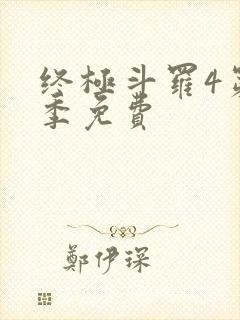 终極斗罹4第
季免費
鄭伊琛